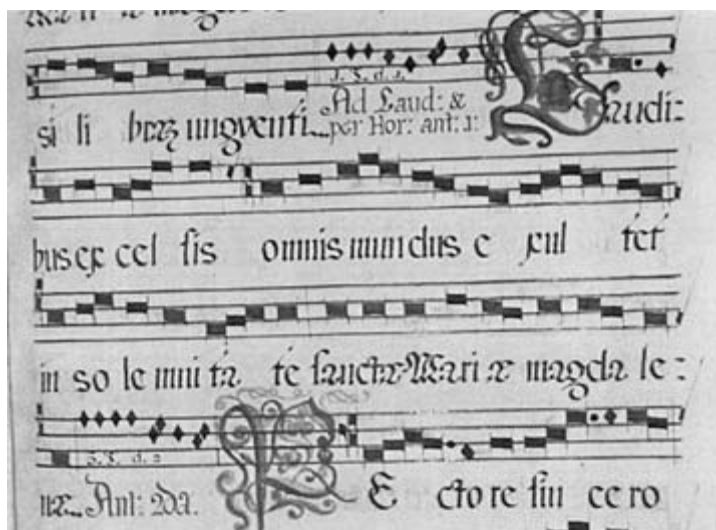 si li bræ ungventi Ad Laud: &
per Hor: ant: 1: Laudi:
bus ex cel sis omnis mundus e xul tet
in so le mni ta te sanctæ Mari æ magda le:
næ Ant: 2da. PE cto re sin ce ro